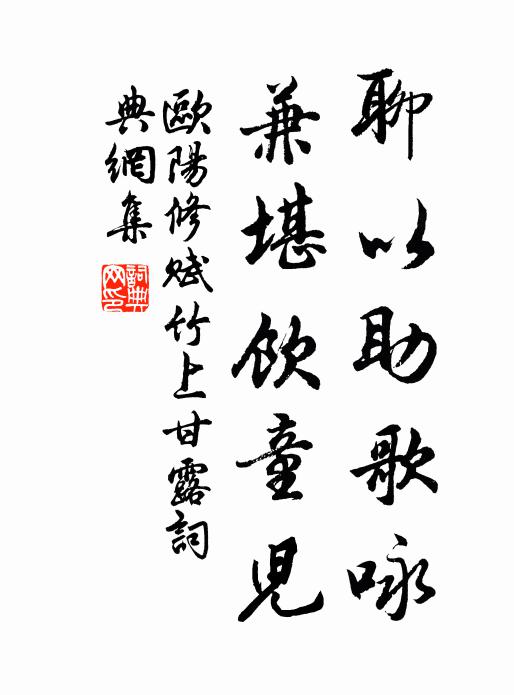 聊以助歌咏
兼堪飲童児
歐陽修赋竹上甘露詞
典網集
詞典网印